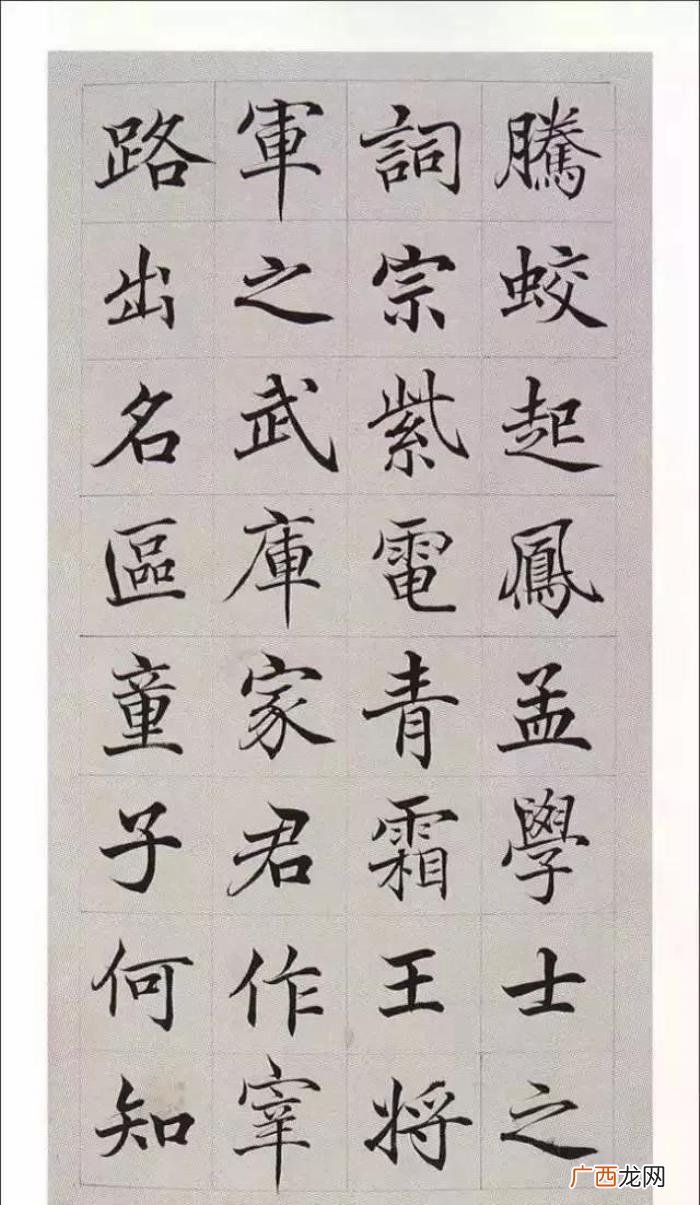 騰蛟起鳳孟學士之
詞宗紫電青霜王將
軍之武庫家君作宰
路出名區童子何知
广西龙网